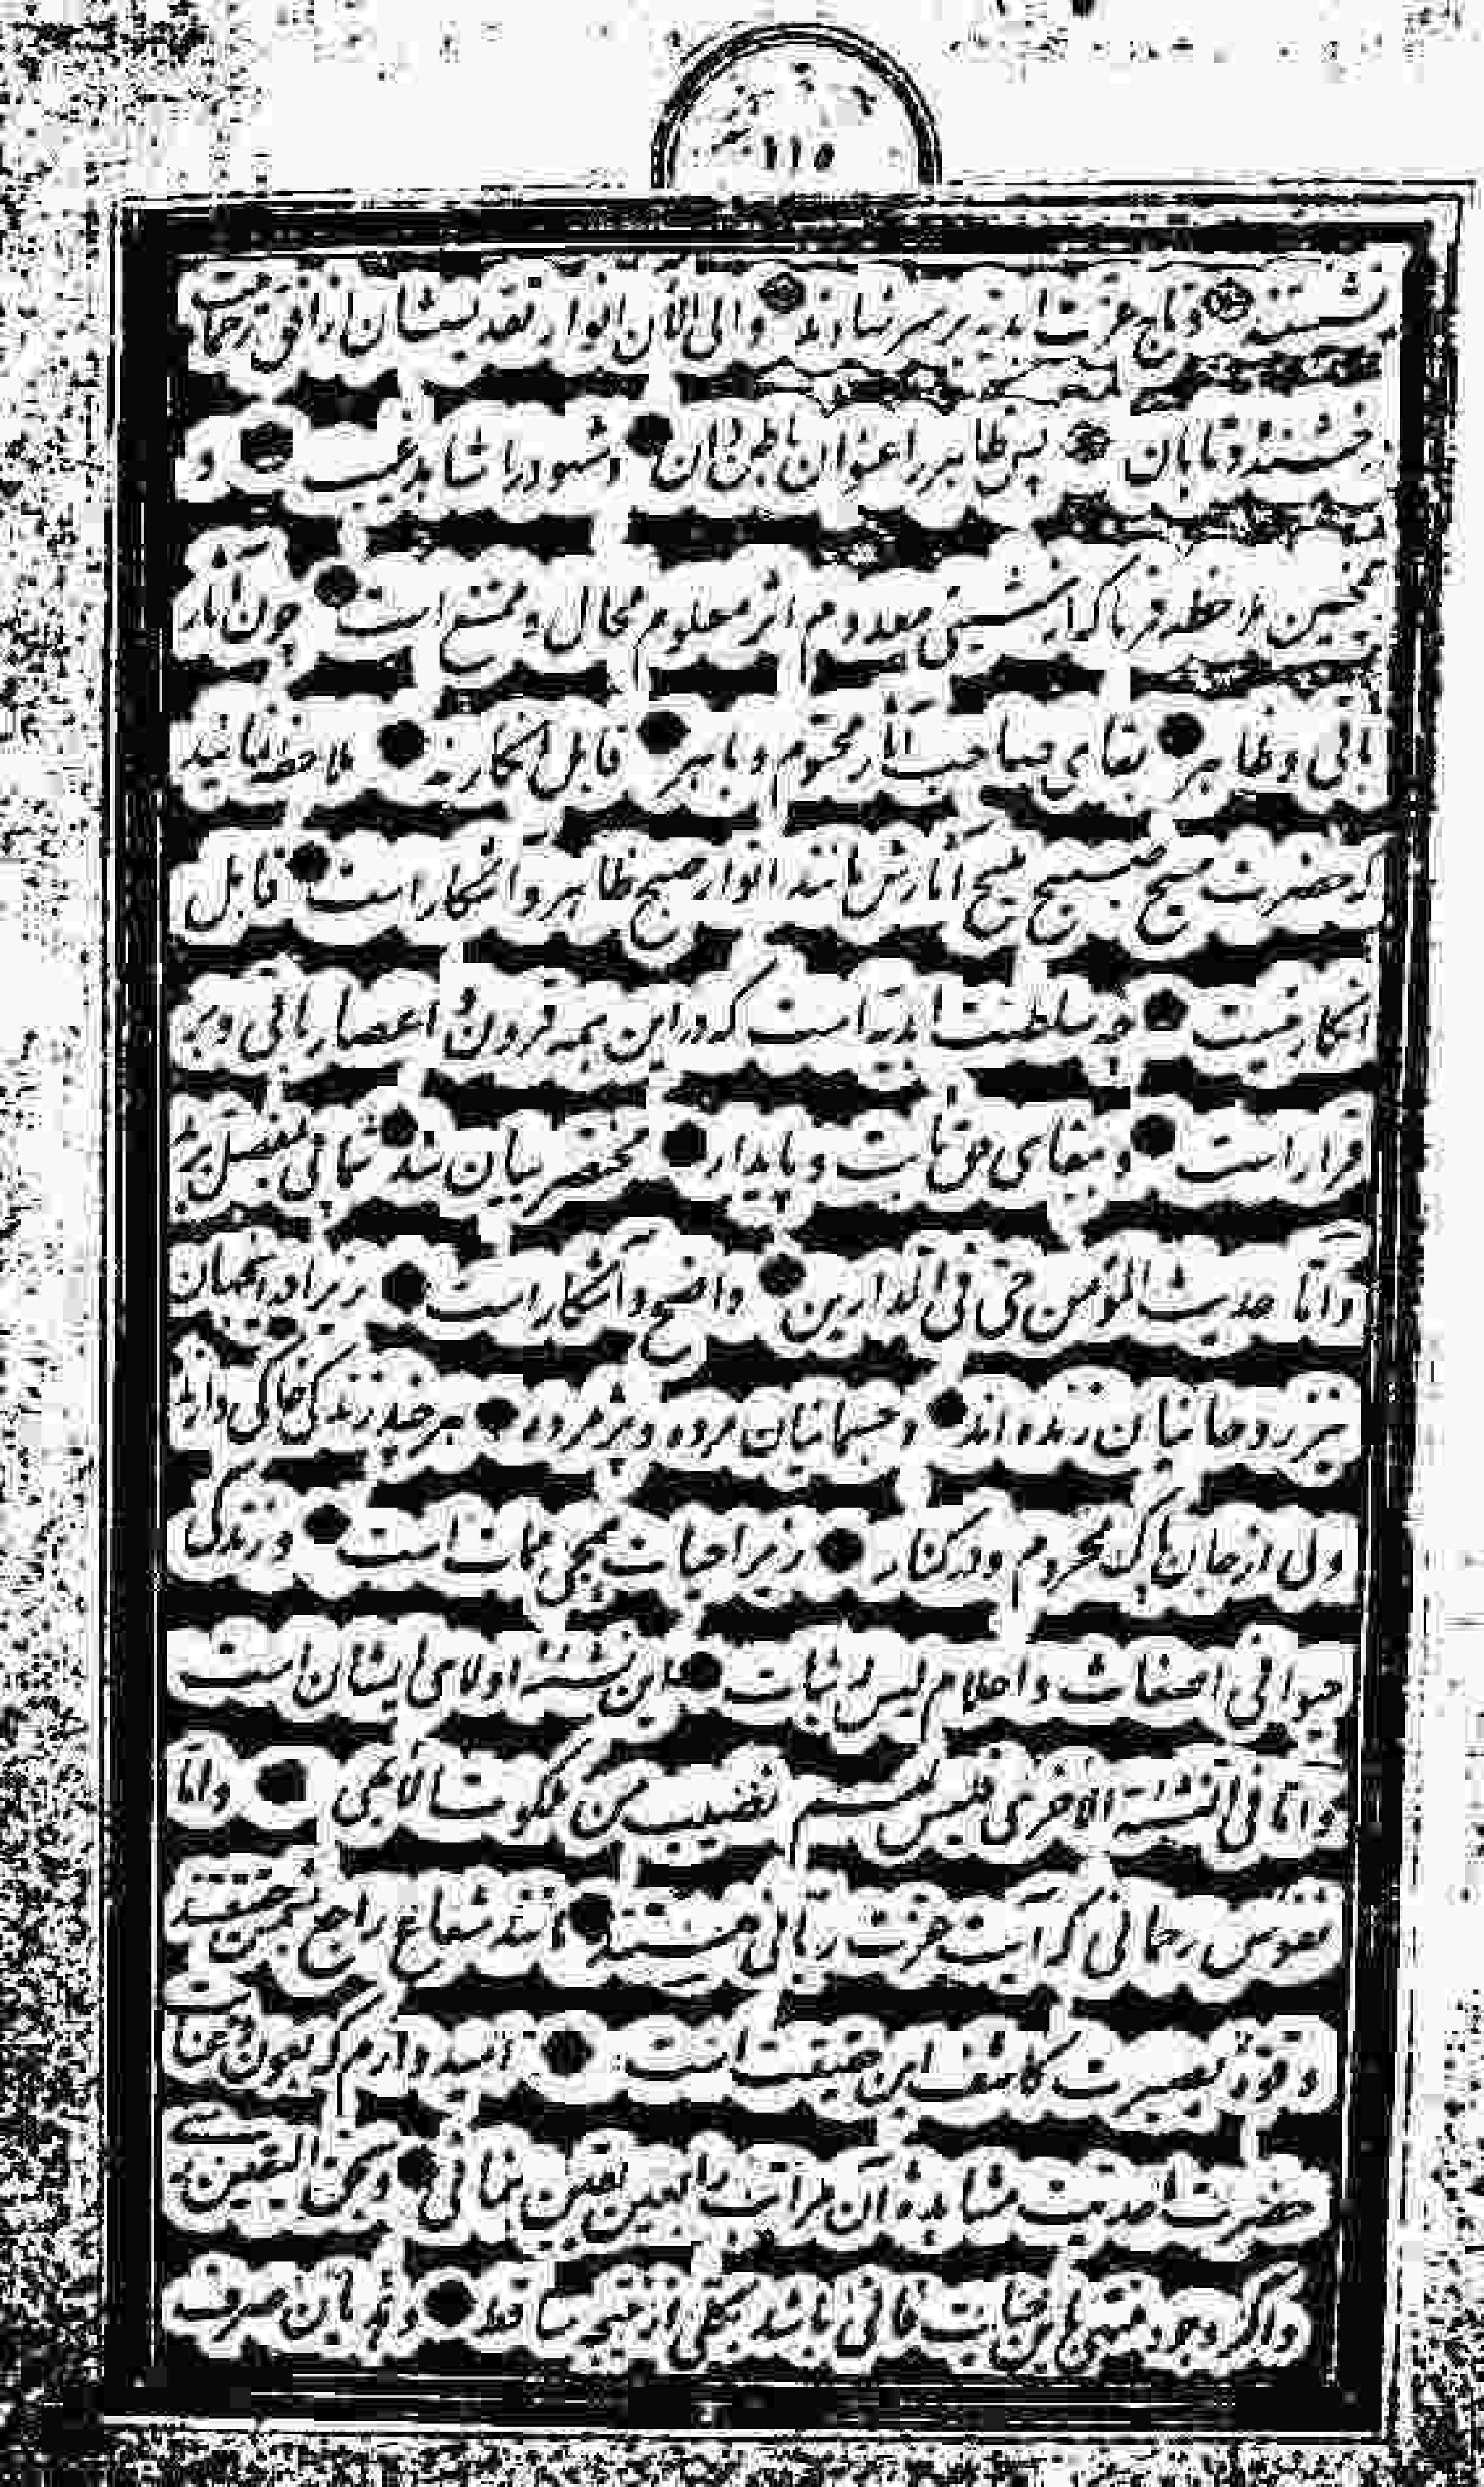 ۱۱۵
نشستند و تاج عزت ابدیه بر سر نهادند والی الآن انوار تقدیسشان از افق رحمانیت
درخشنده و تابان پس ظاهر را عنوان باطن دان و شهود را شاهد غیب و
همچنین ملاحظه فرما که از شیئی معدوم اثر معلوم محال و ممتنع است چون آثار
باقی و ظاهر بقای صاحب آثار محتوم و باهر قابل انکار نه ملاحظه نمائید
که حضرت مسیح صبیح ملیح آثارش مانند انوار صبح ظاهر و آشکار است قابل
انکار نیست چه سلطنت ابدیه است که در این همه قرون و اعصار باقی و بر
قرار است و بقای حق ثابت و پایدار مختصر بیان شد شما پی بمفصل برید
و اما حدیث المؤمن حی فی الدارین واضح و آشکار است زیرا در جهان
نیز روحانیان زنده‌اند و جسمانیان مرده و پژمرده هر چند زندگی خاکی دارند
ولی از جان پاک محروم و در کنار زیرا حیات همجی ممات است و زندگی
حیوانی اضغاث و احلام لیس له ثبات این نشئه اولای ایشان است
و اما فی النشئة الاخری فلیس لهم نصیب من ملکوت الابهی و اما
نفوس رحمانی که آیت عزت ربانی هستند مانند شعاع راجع بشمس حقیقتند
و قوه بصیرت کاشف این حقیقت است امیدوارم که بعون و عنایت
حضرت احدیت مشاهده آن مراتب را بعین یقین نمائی و بحق الیقین رسی
و اگر وجود منتهی باین حیات فانی باشد بکلی از نتیجه ساقط و هذیان صرف